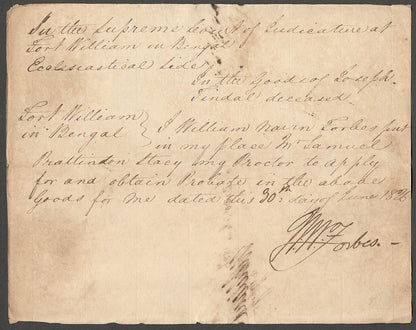 In the Supreme Court of Judicature at
Fort William in Bengal
Ecclesiastical Side
In the Goods of Joseph
Tindal deceased
Fort William
in Bengal
I William Nairn Forbes put
in my place Mr Samuel
Prattinton Stacy my Proctor to apply
for and obtain Probate in the above
Goods for me dated this 30th day of June
W N Forbes.